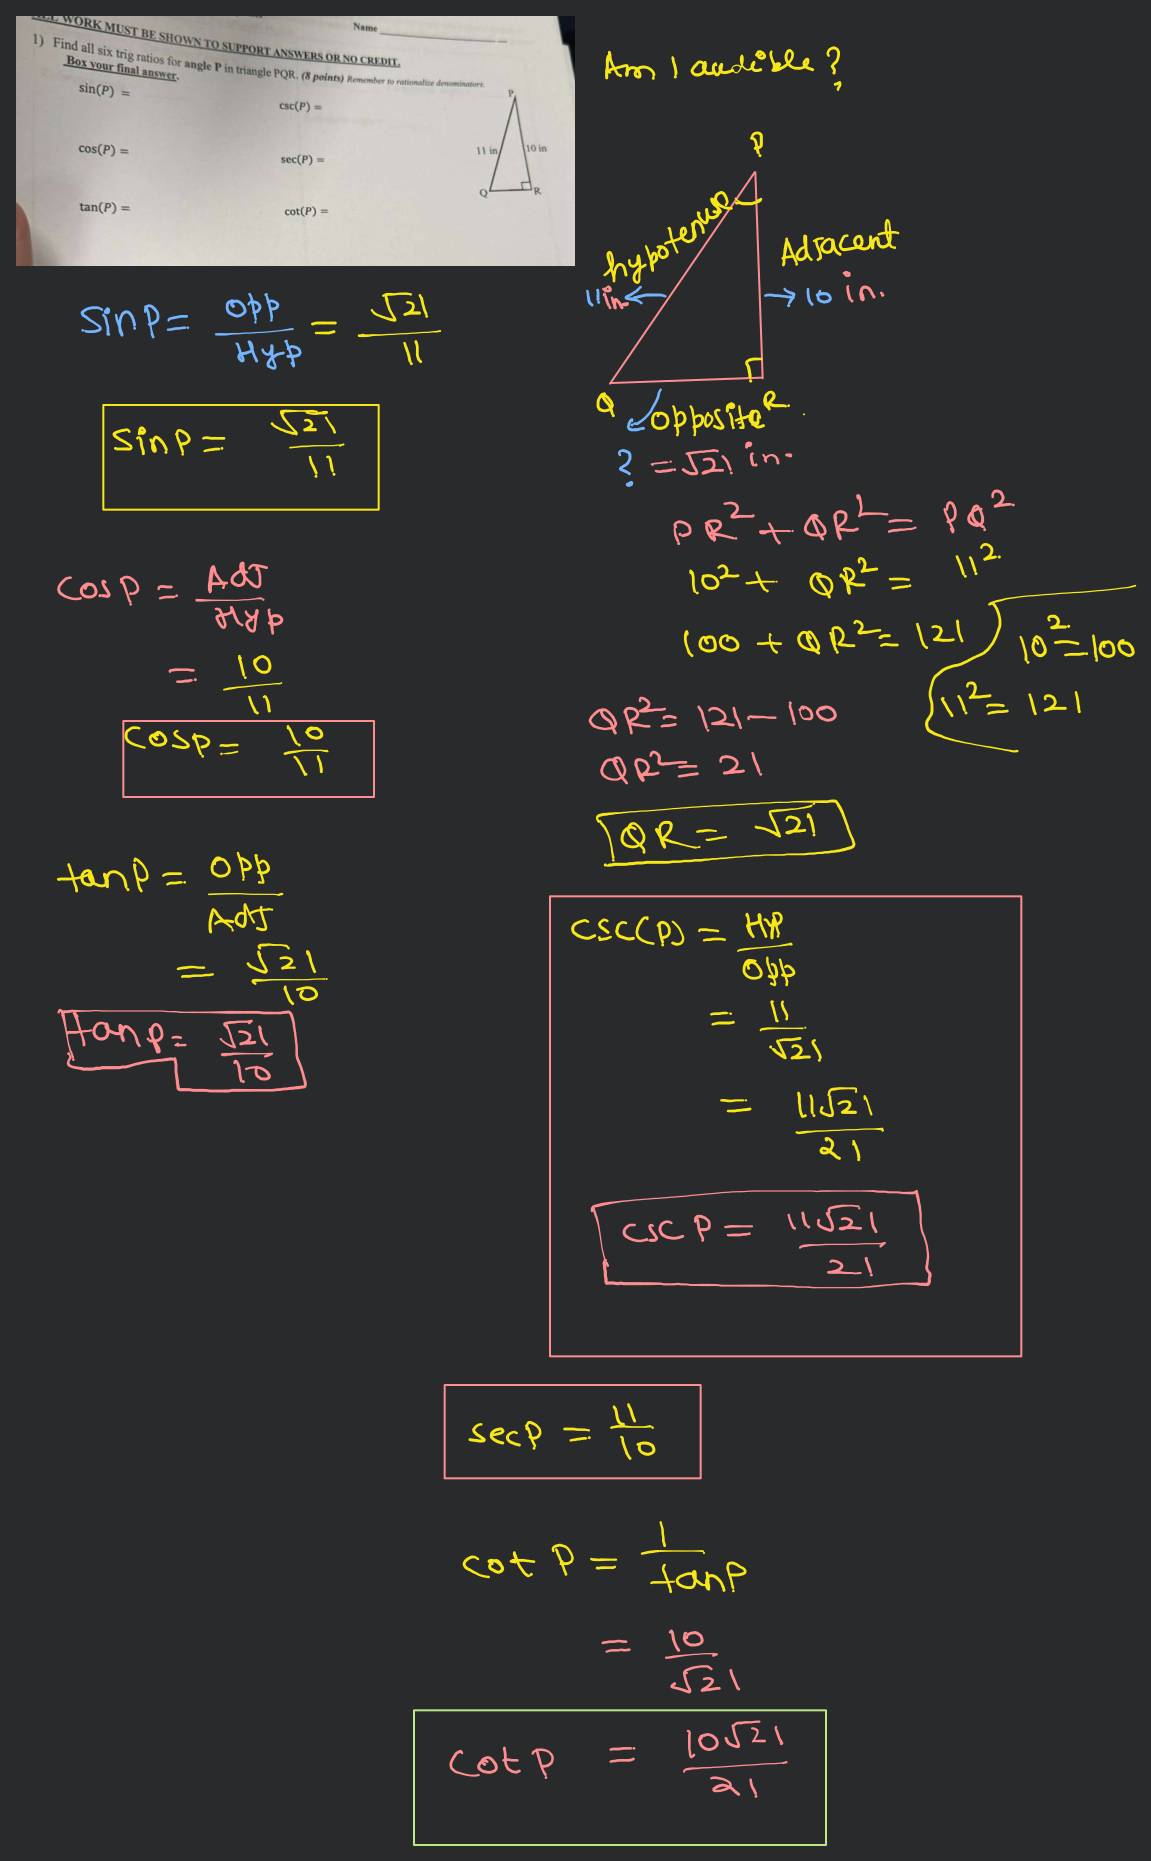 ALL WORK MUST BE SHOWN TO SUPPORT ANSWERS OR NO CREDIT.
Name
1) Find all six trig ratios for angle P in triangle PQR. (8 points) Remember to rationalize denominators.
Box your final answer.
sin(P) =
csc(P) =
cos(P) =
sec(P) =
tan(P) =
cot(P) =
P
11 in
10 in
Q
R
Am I audible?
P
hypotenuse
Adjacent
11 in.
10 in.
Q
R
opposite
? = √21 in.
Sin P = Opp/Hyp = √21/11
Sin P = √21/11
PR² + QR² = PQ²
10² + QR² = 11²
100 + QR² = 121
10² = 100
11² = 121
QR² = 121 - 100
QR² = 21
QR = √21
Cos P = Adj/Hyp
= 10/11
Cos P = 10/11
tan P = Opp/Adj
= √21/10
tan P = √21/10
CSC(P) = Hyp/Opp
= 11/√21
= 11√21/21
CSC P = 11√21/21
Sec P = 11/10
Cot P = 1/tan P
= 10/√21
Cot P = 10√21/21